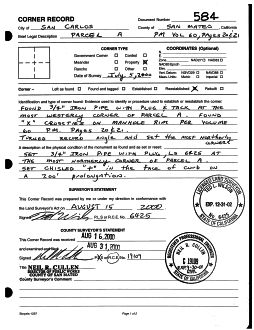 CORNER RECORD
Document Number 584
City of SAN CARLOS County of SAN MATEO, California
Brief Legal Description PARCEL A PM VOL 60, PAGES 20&21
CORNER TYPE
COORDINATES (Optional)
Government Corner Control
Meander Property
Rancho
Other
Date of Survey July 5, 2000
Corner - Left as found Found and tagged Established Reestablished Rebuilt
Identification and type of corner found: Evidence used to identify or procedure used to establish or reestablish the corner:
FOUND 3/4" IRON PIPE WITH PLUG & TACK AT THE
MOST WESTERLY CORNER OF PARCEL A. FOUND
"X" CROSSTIES ON MANHOLE RIM PER VOLUME
60 P.M. PAGES 20&21.
TURNED RECORD ANGLE AND SET THE MOST NORTHERLY
CORNER
A description of the physical condition of the monument as found and as set or reset:
SET 3/4" IRON PIPE WITH PLUG, LS 6425 AT
THE MOST NORTHERLY CORNER OF PARCEL A.
SET CHISLED "+" IN THE FACE OF CURB ON
A 200' PROLONGATION.
SURVEYOR'S STATEMENT
This Corner Record was prepared by me or under my direction in conformance with
the Land Surveyor's Act on AUGUST 15, 2000
Signed P.L.S. or R.C.E. No. 6425
EXP. 12-31-02
COUNTY SURVEYOR'S STATEMENT
This Corner Record was received AUG 16 2000
and examined and filed AUG 31 2000
Signed P.L.S. or R.C.E. No. 19109
Title NEIL R. CULLEN
DIRECTOR OF PUBLIC WORKS
COUNTY OF SAN MATEO
Page 1 of 2